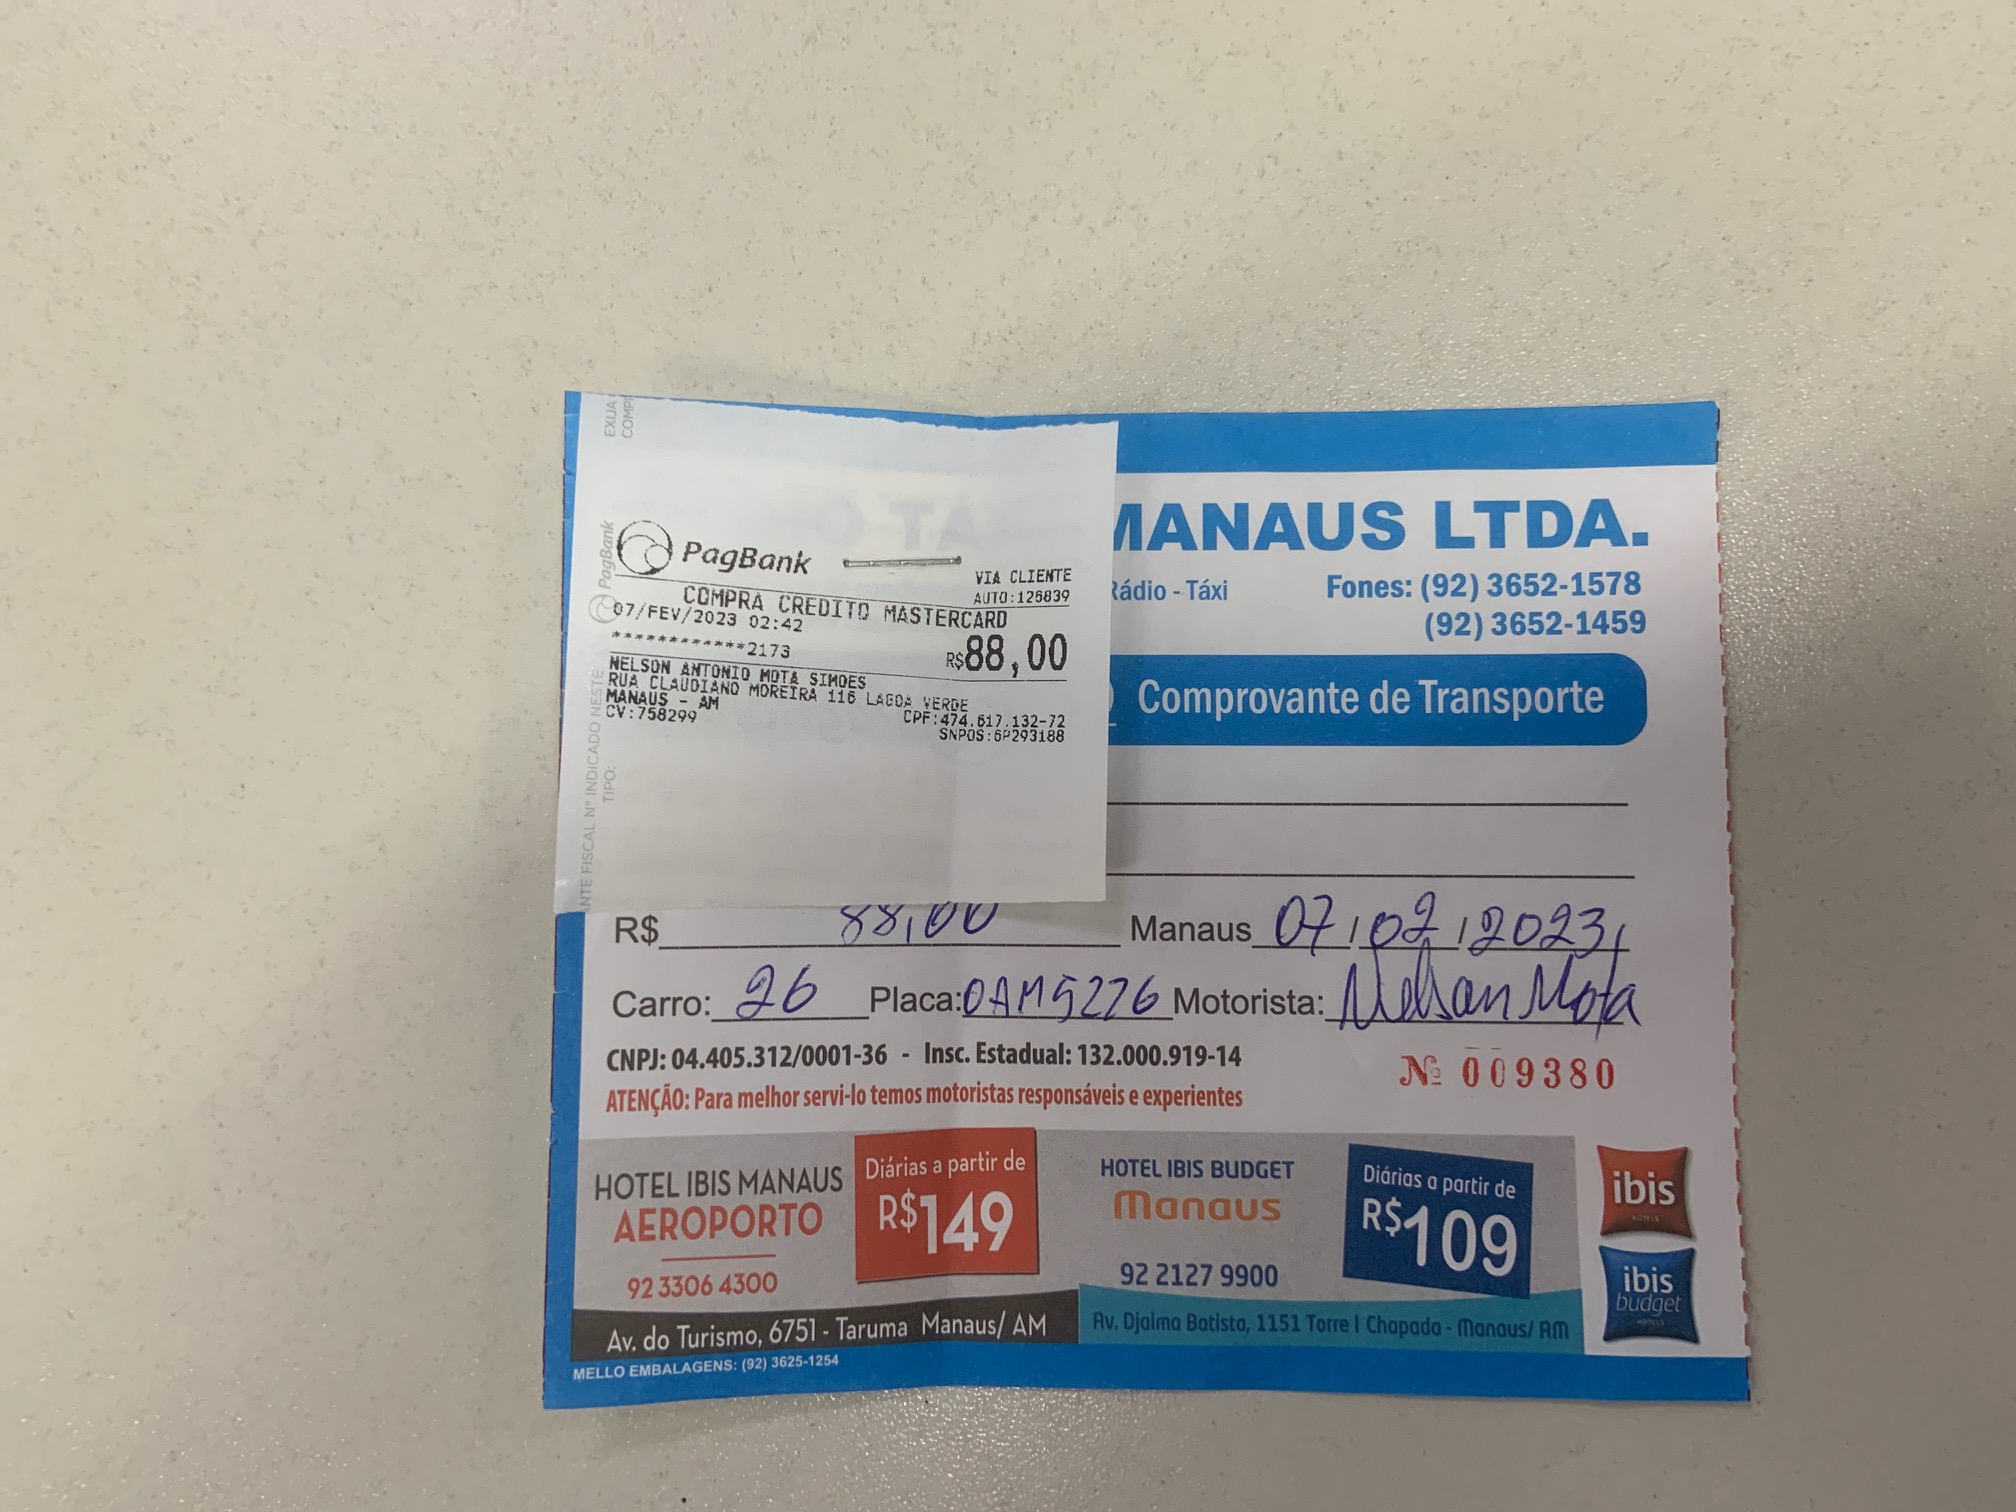 EXIJA
COMP
PagBank
PagBank
VIA CLIENTE
AUTO:126839
COMPRA CREDITO MASTERCARD
07/FEV/2023 02:42
************2173
R$88,00
NELSON ANTONIO MOTA SIMOES
RUA CLAUDIANO MOREIRA 116 LAGOA VERDE
MANAUS - AM
CPF:474.617.132-72
CV:758299
SNPOS:6P293188
ANTE FISCAL Nº INDICADO NESTE
TIPO:
MANAUS LTDA.
Rádio - Táxi Fones: (92) 3652-1578
(92) 3652-1459
Comprovante de Transporte
R$ 88,00 Manaus 07/02/2023
Carro: 26 Placa: OAM5226 Motorista: Nelson Mota
CNPJ: 04.405.312/0001-36 - Insc. Estadual: 132.000.919-14
Nº 009380
ATENÇÃO: Para melhor servi-lo temos motoristas responsáveis e experientes
HOTEL IBIS MANAUS
AEROPORTO
92 3306 4300
Diárias a partir de
R$149
Av. do Turismo, 6751 - Taruma Manaus/ AM
HOTEL IBIS BUDGET
Manaus
92 2127 9900
Diárias a partir de
R$109
Av. Djalma Batista, 1151 Torre I Chapada - Manaus/ AM
ibis
HOTELS
ibis
budget
HOTELS
MELLO EMBALAGENS: (92) 3625-1254